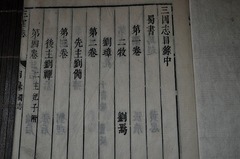 三国志目録中
蜀書
第一卷
二牧
劉焉
劉璋
第二卷
先主劉備
第三卷
後主劉禪
第四卷
二主妃子